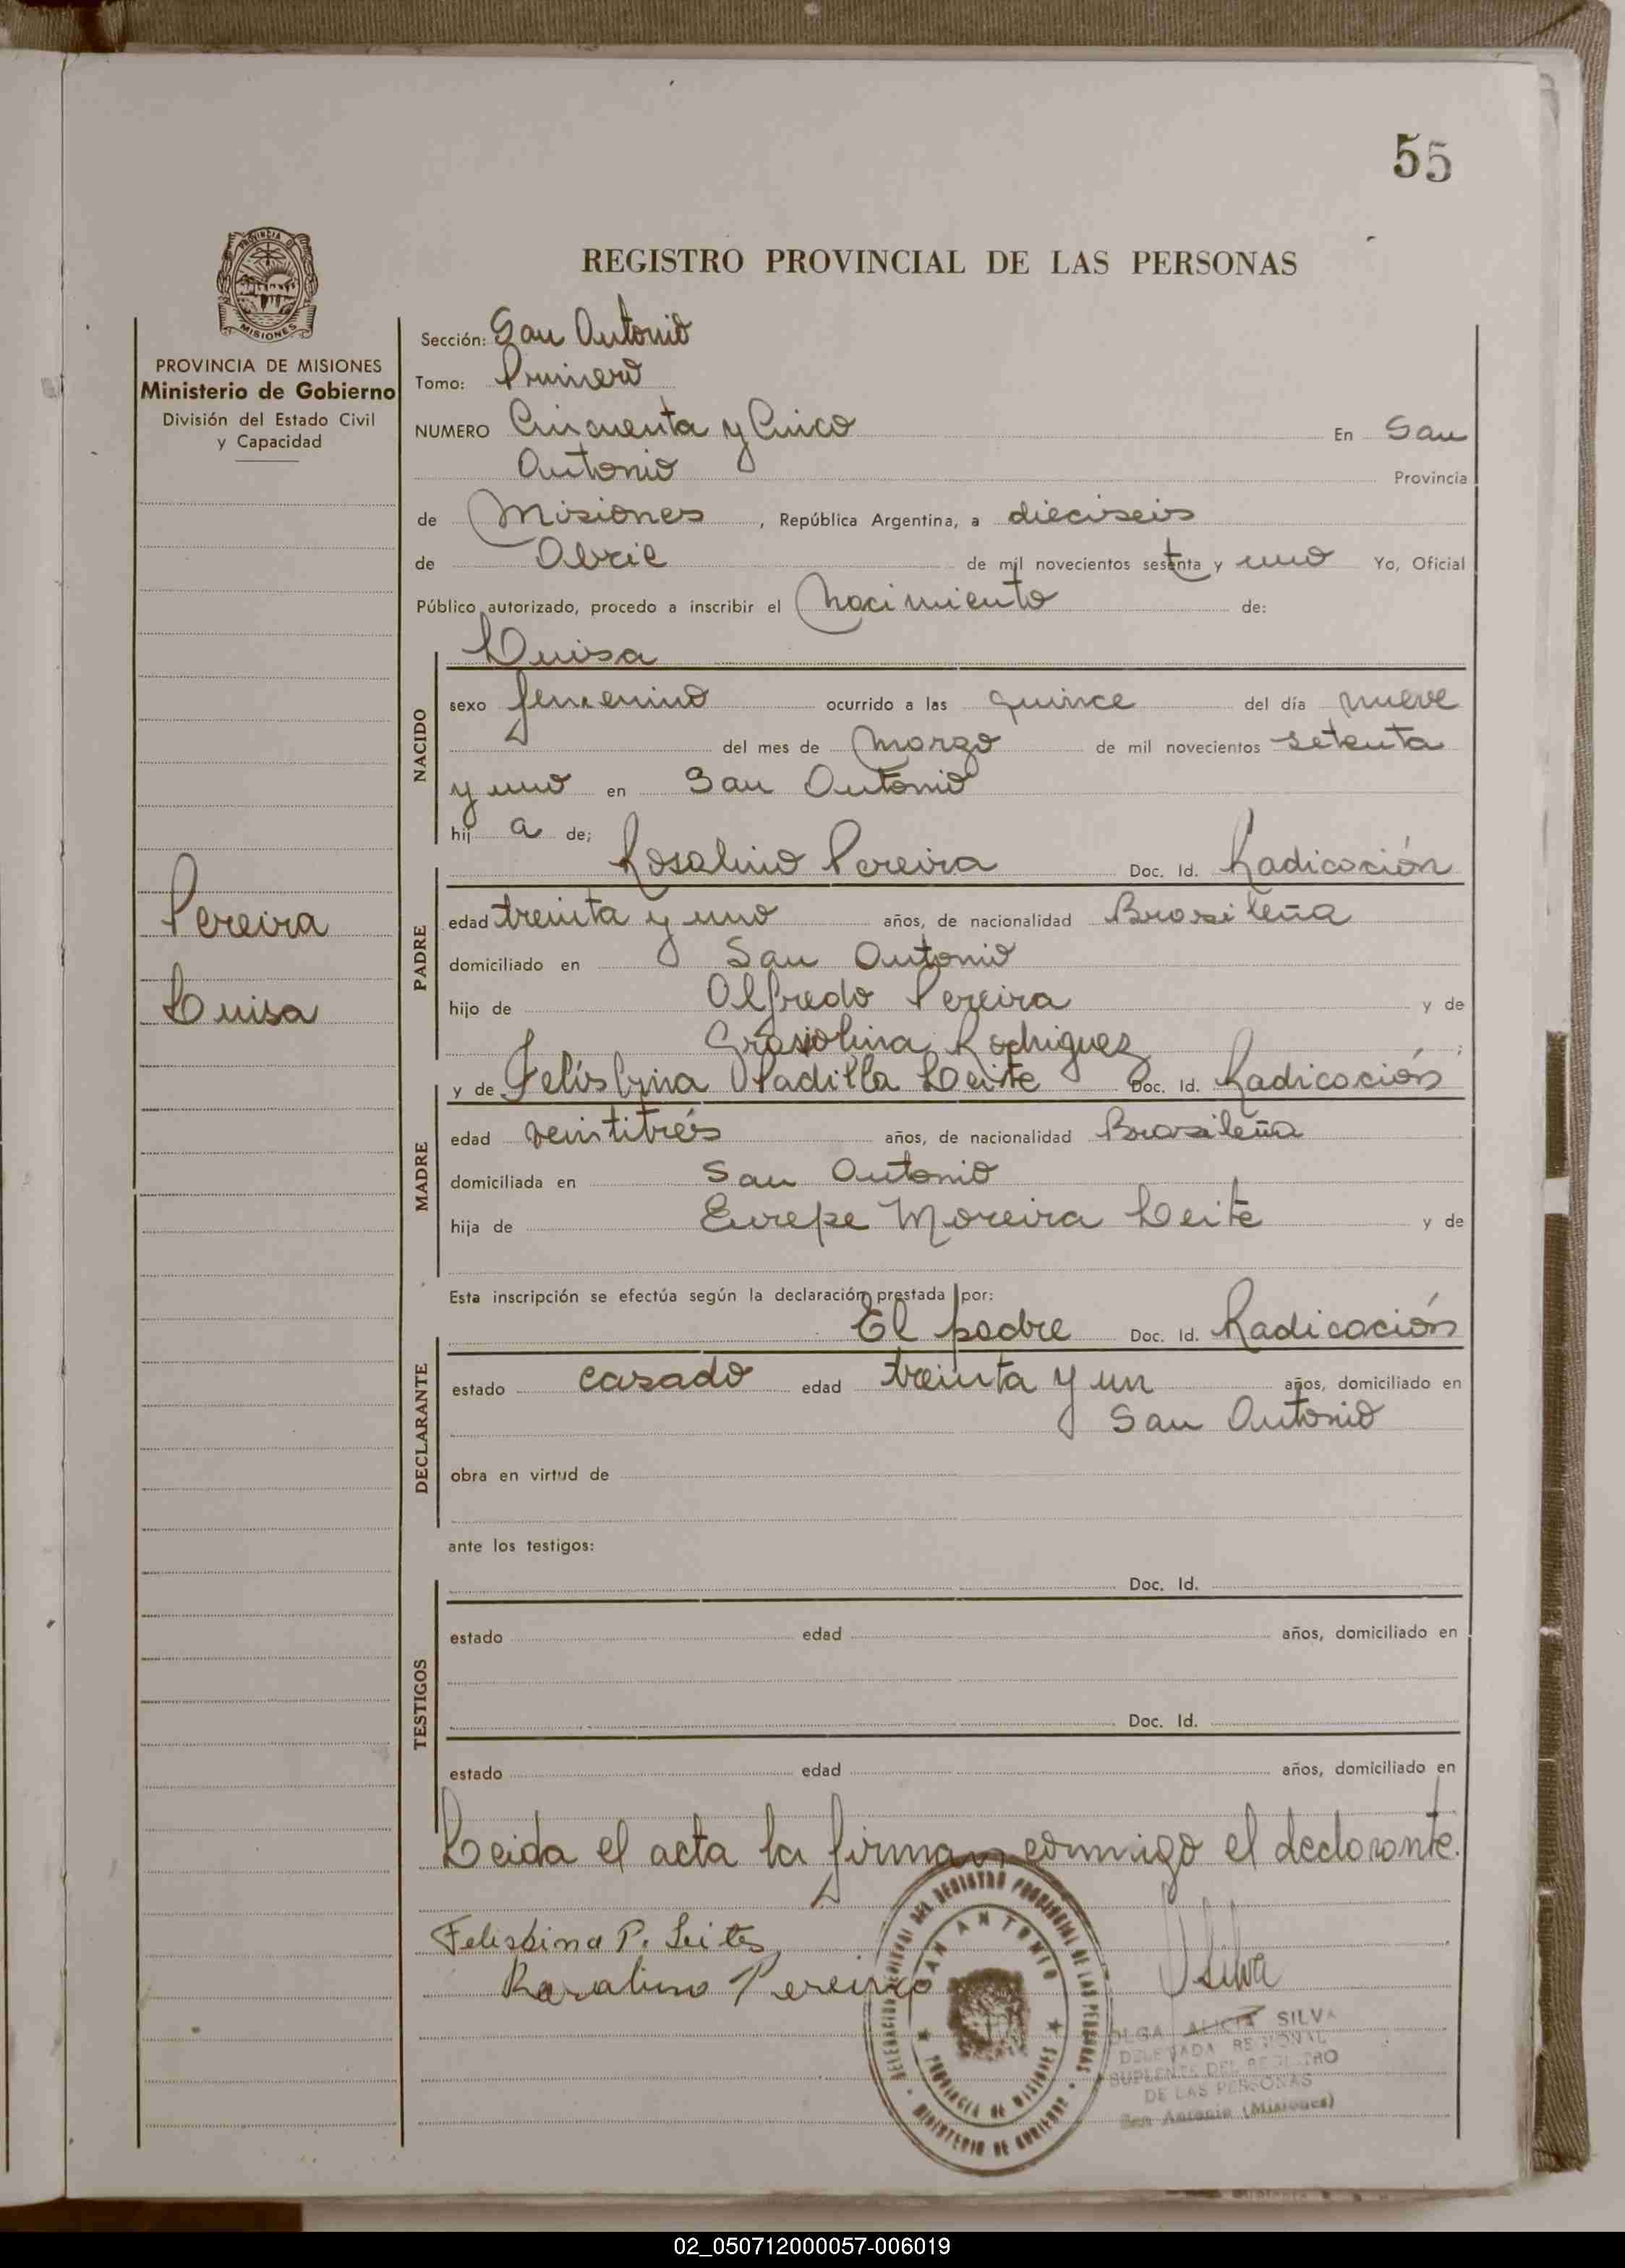 55
REGISTRO PROVINCIAL DE LAS PERSONAS
PROVINCIA DE MISIONES
Ministerio de Gobierno
División del Estado Civil
y Capacidad
Pereira
Luisa
Sección: San Antonio
Tomo: Primero
NUMERO Cincuenta y Cinco En San
Antonio Provincia
de Misiones , República Argentina, a dieciseis
de Abril de mil novecientos setenta y uno Yo, Oficial
Público autorizado, procedo a inscribir el nacimiento de:
Luisa
NACIDO
sexo femenino ocurrido a las quince del día nueve
del mes de marzo de mil novecientos setenta
y uno en San Antonio
hij a de;
PADRE
Rosalino Pereira Doc. Id. Radicación
edad treinta y uno años, de nacionalidad Brasileña
domiciliado en San Antonio
hijo de Alfredo Pereira y de
Rodriguez ;
MADRE
y de Padilla Leite Doc. Id. Radicación
edad veintitrés años, de nacionalidad Brasileña
domiciliada en San Antonio
hija de Moreira Leite y de
Esta inscripción se efectúa según la declaración prestada por:
DECLARANTE
El padre Doc. Id. Radicación
estado casado edad treinta y un años, domiciliado en
San Antonio
obra en virtud de
ante los testigos:
TESTIGOS
Doc. Id.
estado edad años, domiciliado en
Doc. Id.
estado edad años, domiciliado en
Leida el acta la firman conmigo el declarante.
Felisbina P. Leites
Rosalino Pereira
Silva
SAN ANTONIO
PROVINCIA DE MISIONES
DELEGACION DEL REGISTRO PROVINCIAL DE LAS PERSONAS
MINISTERIO DE GOBIERNO
OLGA ALICIA SILVA
DELEGADA REGIONAL
SUPLENTE DEL REGISTRO
DE LAS PERSONAS
San Antonio (Misiones)
02_050712000057-006019